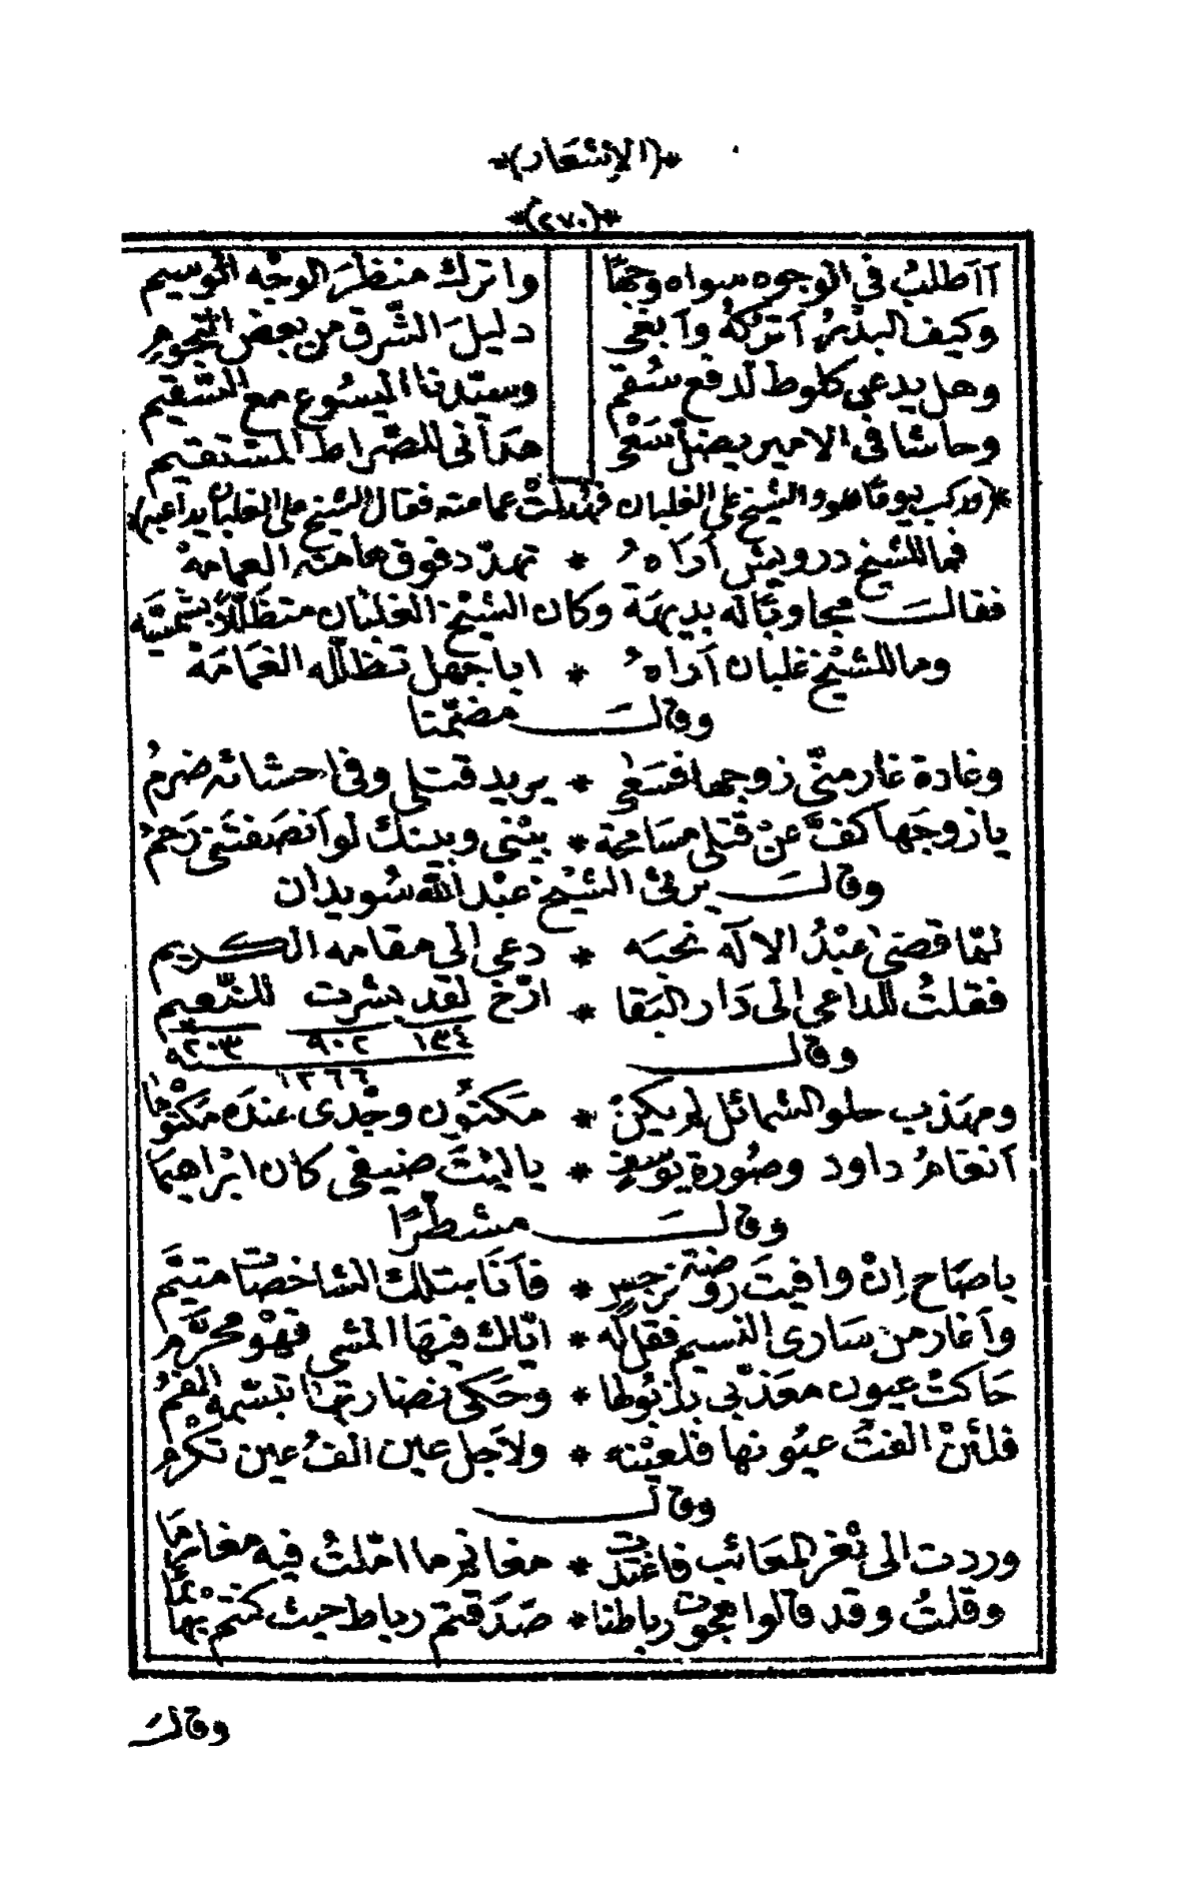 *(الاشعار)*
*(٢٧٠)*
أأطلبُ في الوجوه سواه وجهًا واترك منظرَ الوجْه الوسيم
وكيف البدْرُ أتركهُ وأبغي دليلَ الشّرق من بعض النّجوم
وهل يدعى كلوط لدفع سُقم وسيّدنا اليسُوع مع السّقيم
وحاشا في الامير يضلّ سَعْي هدَاني للصّراط المسْتقيم
*(وركب يومًا هو والشيخ علي الغلبان فهُدلتْ عمامته فقال الشيخ علي الغلبان يداعبه)*
فما للشيخ درويش أرَاهُ * تهدّد فوق هامته العمامهْ
فقالَ مجاوبًا له بديهَة وكان الشيْخ الغلبان متظَلّلاً بشمْسيَّه
وما للشيْخ غلبان أرَاهُ * اباجهل تظلّله الغمَامَهْ
وقالَ مضمّنا
وغادة غار منّي زوجها فسَعى * يريد قتلي وفي احشائه ضرمُ
يا زوجَها كفَّ عنْ قتلي مسَامحة * بيْني وبينك لو أنصَفتَني رَحمُ
وقالَ يرثي الشيْخ عبْد الله سُويدان
لمّا قضى عبْدُ الالَه نحبَه * دعي إلى مقامه الكريم
فقلتُ للداعي إلى دَار البَقا * ارّخ لقد بشرت للنّعيم
١٣٤ ٩٠٢ ٢٠٣
وقالَ
١٢٦٦
ومهذب حلو الشمائل لم يكنْ * مَكنُون وجْدي عندَه مَكْتومَا
أنغامُ داود وصُورة يوسفٍ * يا ليْتَ ضيفي كان ابْراهيمَا
وقالَ مشطرًا
يا صَاح إنْ وافيتَ روضة نرجس * فأنَا بتلك الشاخصات متيَّم
وأغار من سَاري النسيم فقل له * ايّاك فيهَا المشي فهْو محَرَّم
حَاكتْ عيون معذّبي بذبُولها * وحَكى نضارتهَا تبسّمه الفمُ
فلئنْ الفتُ عيُونها فلعيْنه * ولأجل عين الفُ عين تكْرم
وقالَ
وردت الى ثغْر المعَائب فاغتدت * مغانيَ ما امّلتُ فيه مغارمَا
وقلتُ وقد قالوا هجوت رباطنا * صَدَقتم رباط حيث كنتم بهْا
وقالَ